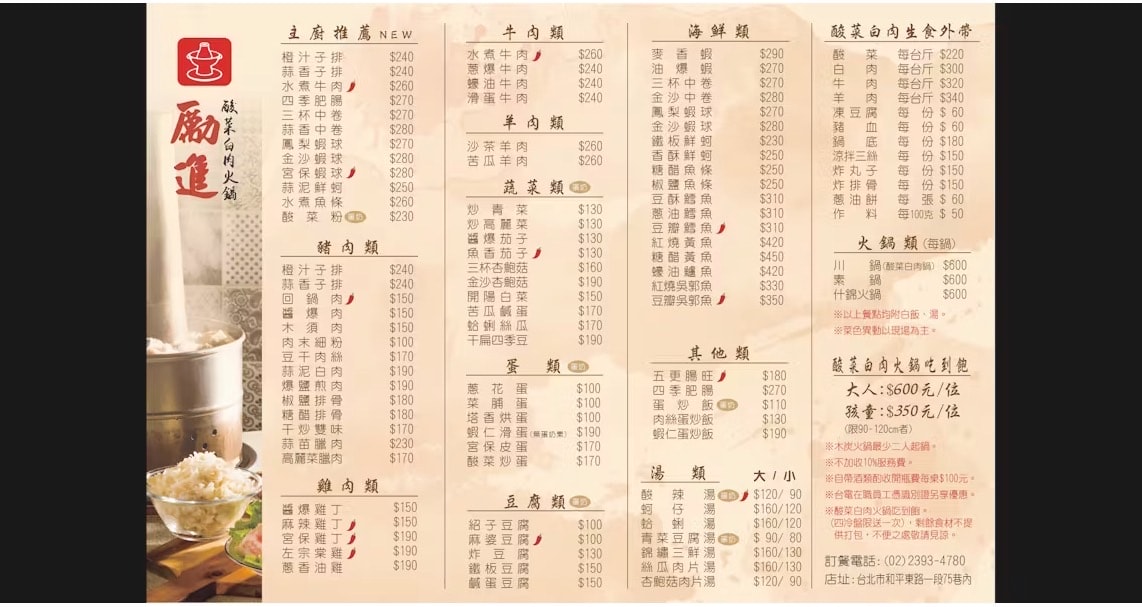 勵進
酸菜白肉火鍋
主廚推薦 NEW
橙汁子排 $240
蒜香子排 $240
水煮牛肉 $260
四季肥腸 $270
三杯中卷 $270
蒜香中卷 $280
鳳梨蝦球 $270
金沙蝦球 $280
宮保蝦球 $280
蒜泥鮮蚵 $250
水煮魚條 $260
酸菜粉 蛋奶 $230
豬肉類
橙汁子排 $240
蒜香子排 $240
回鍋肉 $150
醬爆肉 $150
木須肉 $150
肉末細粉 $100
豆干肉絲 $170
蒜泥白肉 $190
爆鹽煎肉 $190
椒鹽排骨 $180
糖醋排骨 $180
干炒雙味 $170
蒜苗臘肉 $230
高麗菜臘肉 $170
雞肉類
醬爆雞丁 $150
麻辣雞丁 $150
宮保雞丁 $190
左宗棠雞 $190
蔥香油雞 $190
牛肉類
水煮牛肉 $260
蔥爆牛肉 $240
蠔油牛肉 $240
滑蛋牛肉 $240
羊肉類
沙茶羊肉 $260
苦瓜羊肉 $260
蔬菜類 蛋奶
炒青菜 $130
炒高麗菜 $130
醬爆茄子 $130
魚香茄子 $130
三杯杏鮑菇 $160
金沙杏鮑菇 $190
開陽白菜 $150
苦瓜鹹蛋 $170
蛤蜊絲瓜 $170
干扁四季豆 $190
蛋類 蛋奶
蔥花蛋 $100
菜脯蛋 $100
塔香烘蛋 $100
蝦仁滑蛋(無蛋奶素) $190
宮保皮蛋 $170
酸菜炒蛋 $170
豆腐類
紹子豆腐 $100
麻婆豆腐 $100
炸豆腐 $130
鐵板豆腐 $150
鹹蛋豆腐 $150
海鮮類
麥香蝦 $290
油爆蝦 $270
三杯中卷 $270
金沙中卷 $280
鳳梨蝦球 $270
金沙蝦球 $280
鐵板鮮蚵 $230
香酥鮮蚵 $250
糖醋魚條 $250
椒鹽魚條 $250
豆酥鱈魚 $310
蔥油鱈魚 $310
豆瓣鱈魚 $310
紅燒黃魚 $420
糖醋黃魚 $450
蠔油鱸魚 $420
紅燒吳郭魚 $330
豆瓣吳郭魚 $350
其他類
五更腸旺 $180
四季肥腸 $270
蛋炒飯 蛋奶 $110
肉絲蛋炒飯 $130
蝦仁蛋炒飯 $190
湯類 大/小
酸辣湯 蛋奶 $120/ 90
蚵仔湯 $160/120
蛤蜊湯 $160/120
青菜豆腐湯 蛋奶 $ 90/ 80
錦繡三鮮湯 $160/130
絲瓜肉片湯 $160/130
杏鮑菇肉片湯 $120/ 90
酸菜白肉生食外帶
酸菜 每台斤 $220
白肉 每台斤 $300
牛肉 每台斤 $320
羊肉 每台斤 $340
凍豆腐 每份 $ 60
豬血 每份 $ 60
鍋底 每份 $180
涼拌三絲 每份 $150
炸丸子 每份 $150
炸排骨 每份 $150
蔥油餅 每張 $ 60
作料 每100克 $ 50
火鍋類(每鍋)
川鍋(酸菜白肉鍋) $600
素鍋 $600
什錦火鍋 $600
※以上餐點均附白飯、湯。
※菜色異動以現場為主。
酸菜白肉火鍋吃到飽
大人:$600元/位
孩童:$350元/位
(限90-120cm者)
※木炭火鍋最少二人起鍋。
※不加收10%服務費。
※自帶酒類酌收開瓶費每桌$100元。
※台電在職員工憑識別證另享優惠。
※酸菜白肉火鍋吃到飽。
(四冷盤限送一次),剩餘食材不提
供打包,不便之處敬請見諒。
訂餐電話:(02)2393-4780
店址:台北市和平東路一段75巷內